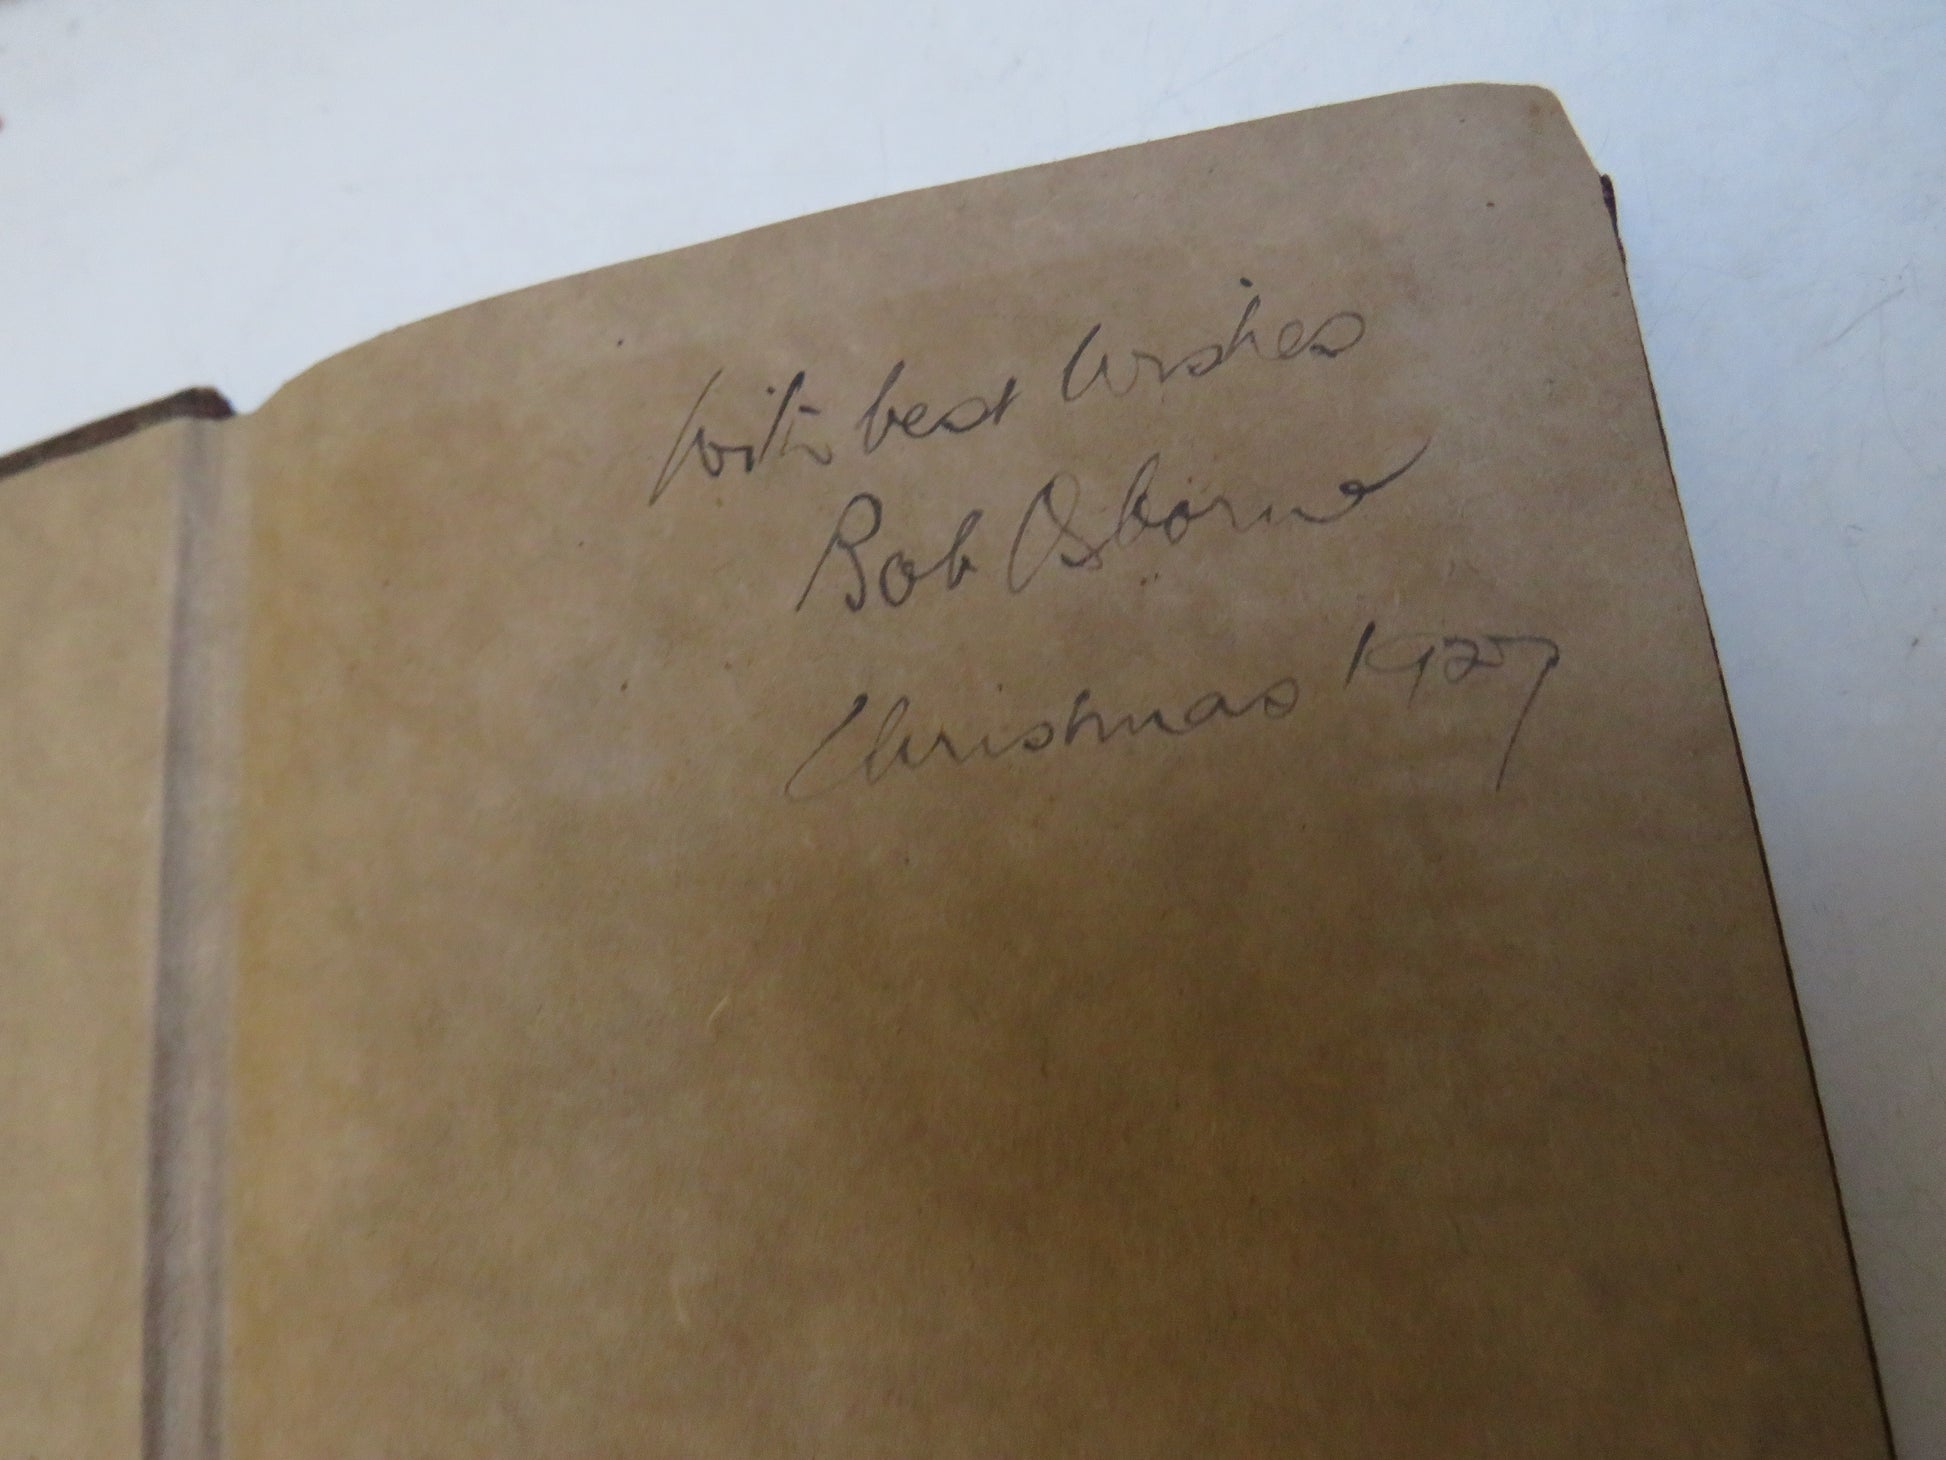 With best Wishes
Bob Osborne
Christmas 1927